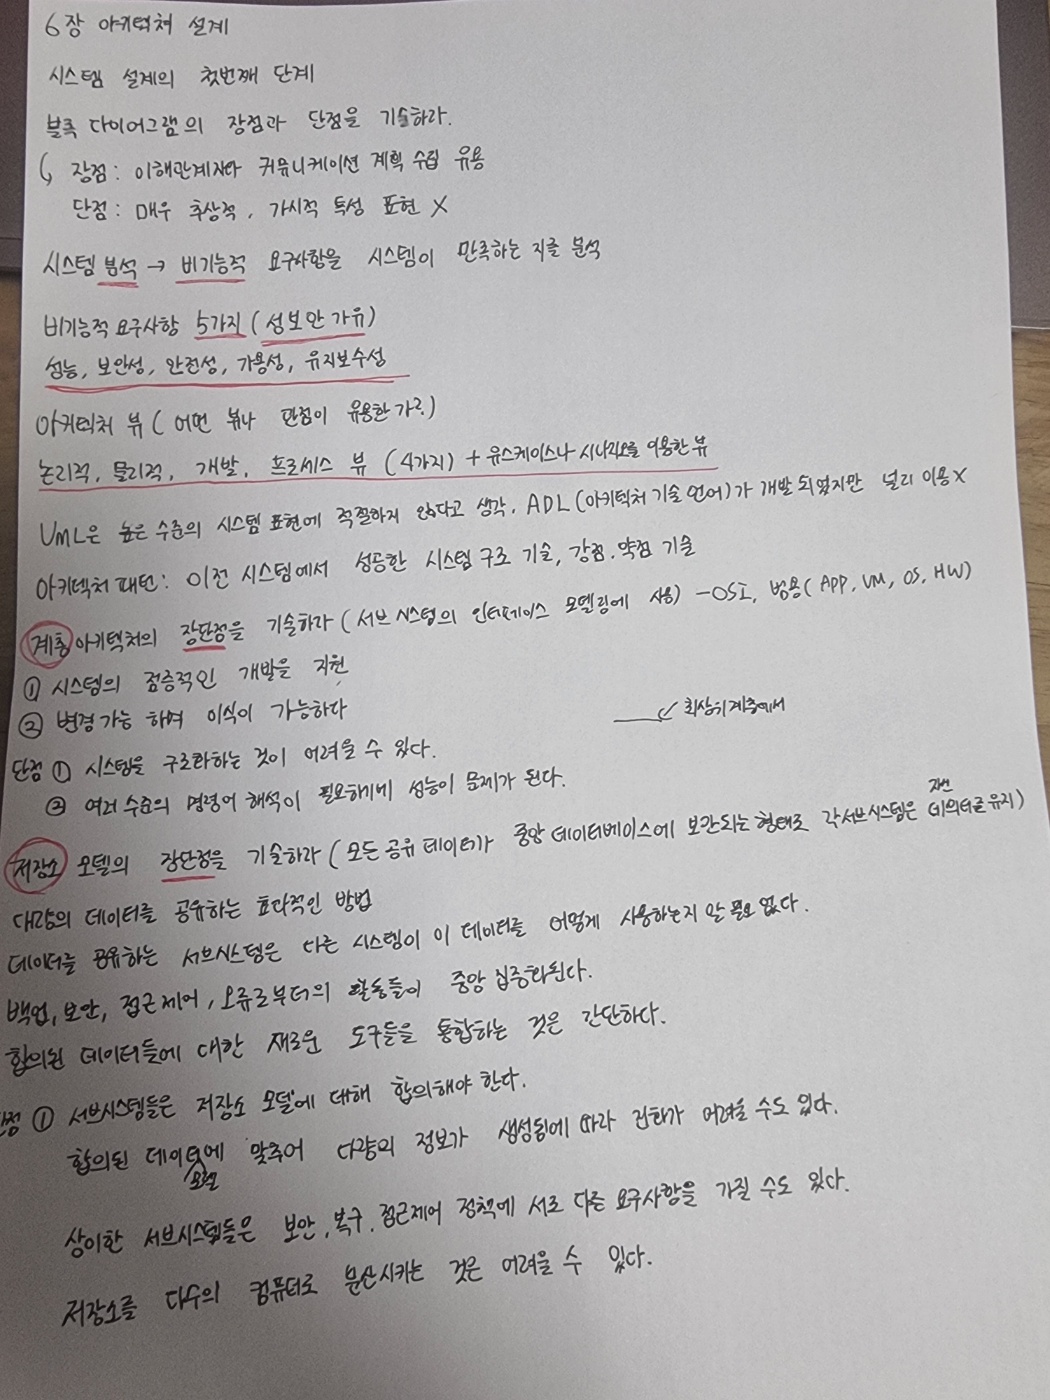 6장 아키텍쳐 설계
시스템 설계의 첫번째 단계
블록 다이어그램의 장점과 단점을 기술하라.
장점: 이해관계자와 커뮤니케이션 계획 수립 유용
단점: 매우 추상적, 가시적 특성 표현 X
시스템 분석 → 비기능적 요구사항을 시스템이 만족하는 지를 분석
비기능적 요구사항 5가지 (성보안가유)
성능, 보안성, 안전성, 가용성, 유지보수성
아키텍처 뷰 (어떤 뷰나 관점이 유용한가?)
논리적, 물리적, 개발, 프로세스 뷰 (4가지) + 유스케이스나 시나리오를 이용한 뷰
UML은 높은 수준의 시스템 표현에 적절하지 않다고 생각, ADL (아키텍처 기술 언어)가 개발되었지만 널리 이용 X
아키텍처 패턴: 이전 시스템에서 성공한 시스템 구조 기술, 강점, 약점 기술
계층 아키텍처의 장단점을 기술하라 (서브시스템의 인터페이스 모델링에 사용) - OSI, 범용 (APP, VM, OS, HW)
① 시스템의 점증적인 개발을 지원
② 변경가능 하며 이식이 가능하다
최상위계층에서
단점 ① 시스템을 구조화하는 것이 어려울 수 있다.
② 여러 수준의 명령어 해석이 필요하기에 성능이 문제가 된다.
저장소 모델의 장단점을 기술하라 (모든 공유 데이터가 중앙 데이터베이스에 보관되는 형태로 각 서브시스템은 자신 데이터를 유지)
대량의 데이터를 공유하는 효과적인 방법
데이터를 공유하는 서브시스템은 다른 시스템이 이 데이터를 어떻게 사용하는지 알 필요 없다.
백업, 보안, 접근제어, 오류로부터의 활동들이 중앙 집중화된다.
합의된 데이터들에 대한 새로운 도구들을 통합하는 것은 간단하다.
단점 ① 서브시스템들은 저장소 모델에 대해 합의해야 한다.
합의된 데이터 모델에 맞추어 다량의 정보가 생성됨에 따라 진화가 어려울 수도 있다.
상이한 서브시스템들은 보안, 복구, 접근제어 정책에 서로 다른 요구사항을 가질 수도 있다.
저장소를 다수의 컴퓨터로 분산시키는 것은 어려울 수 있다.